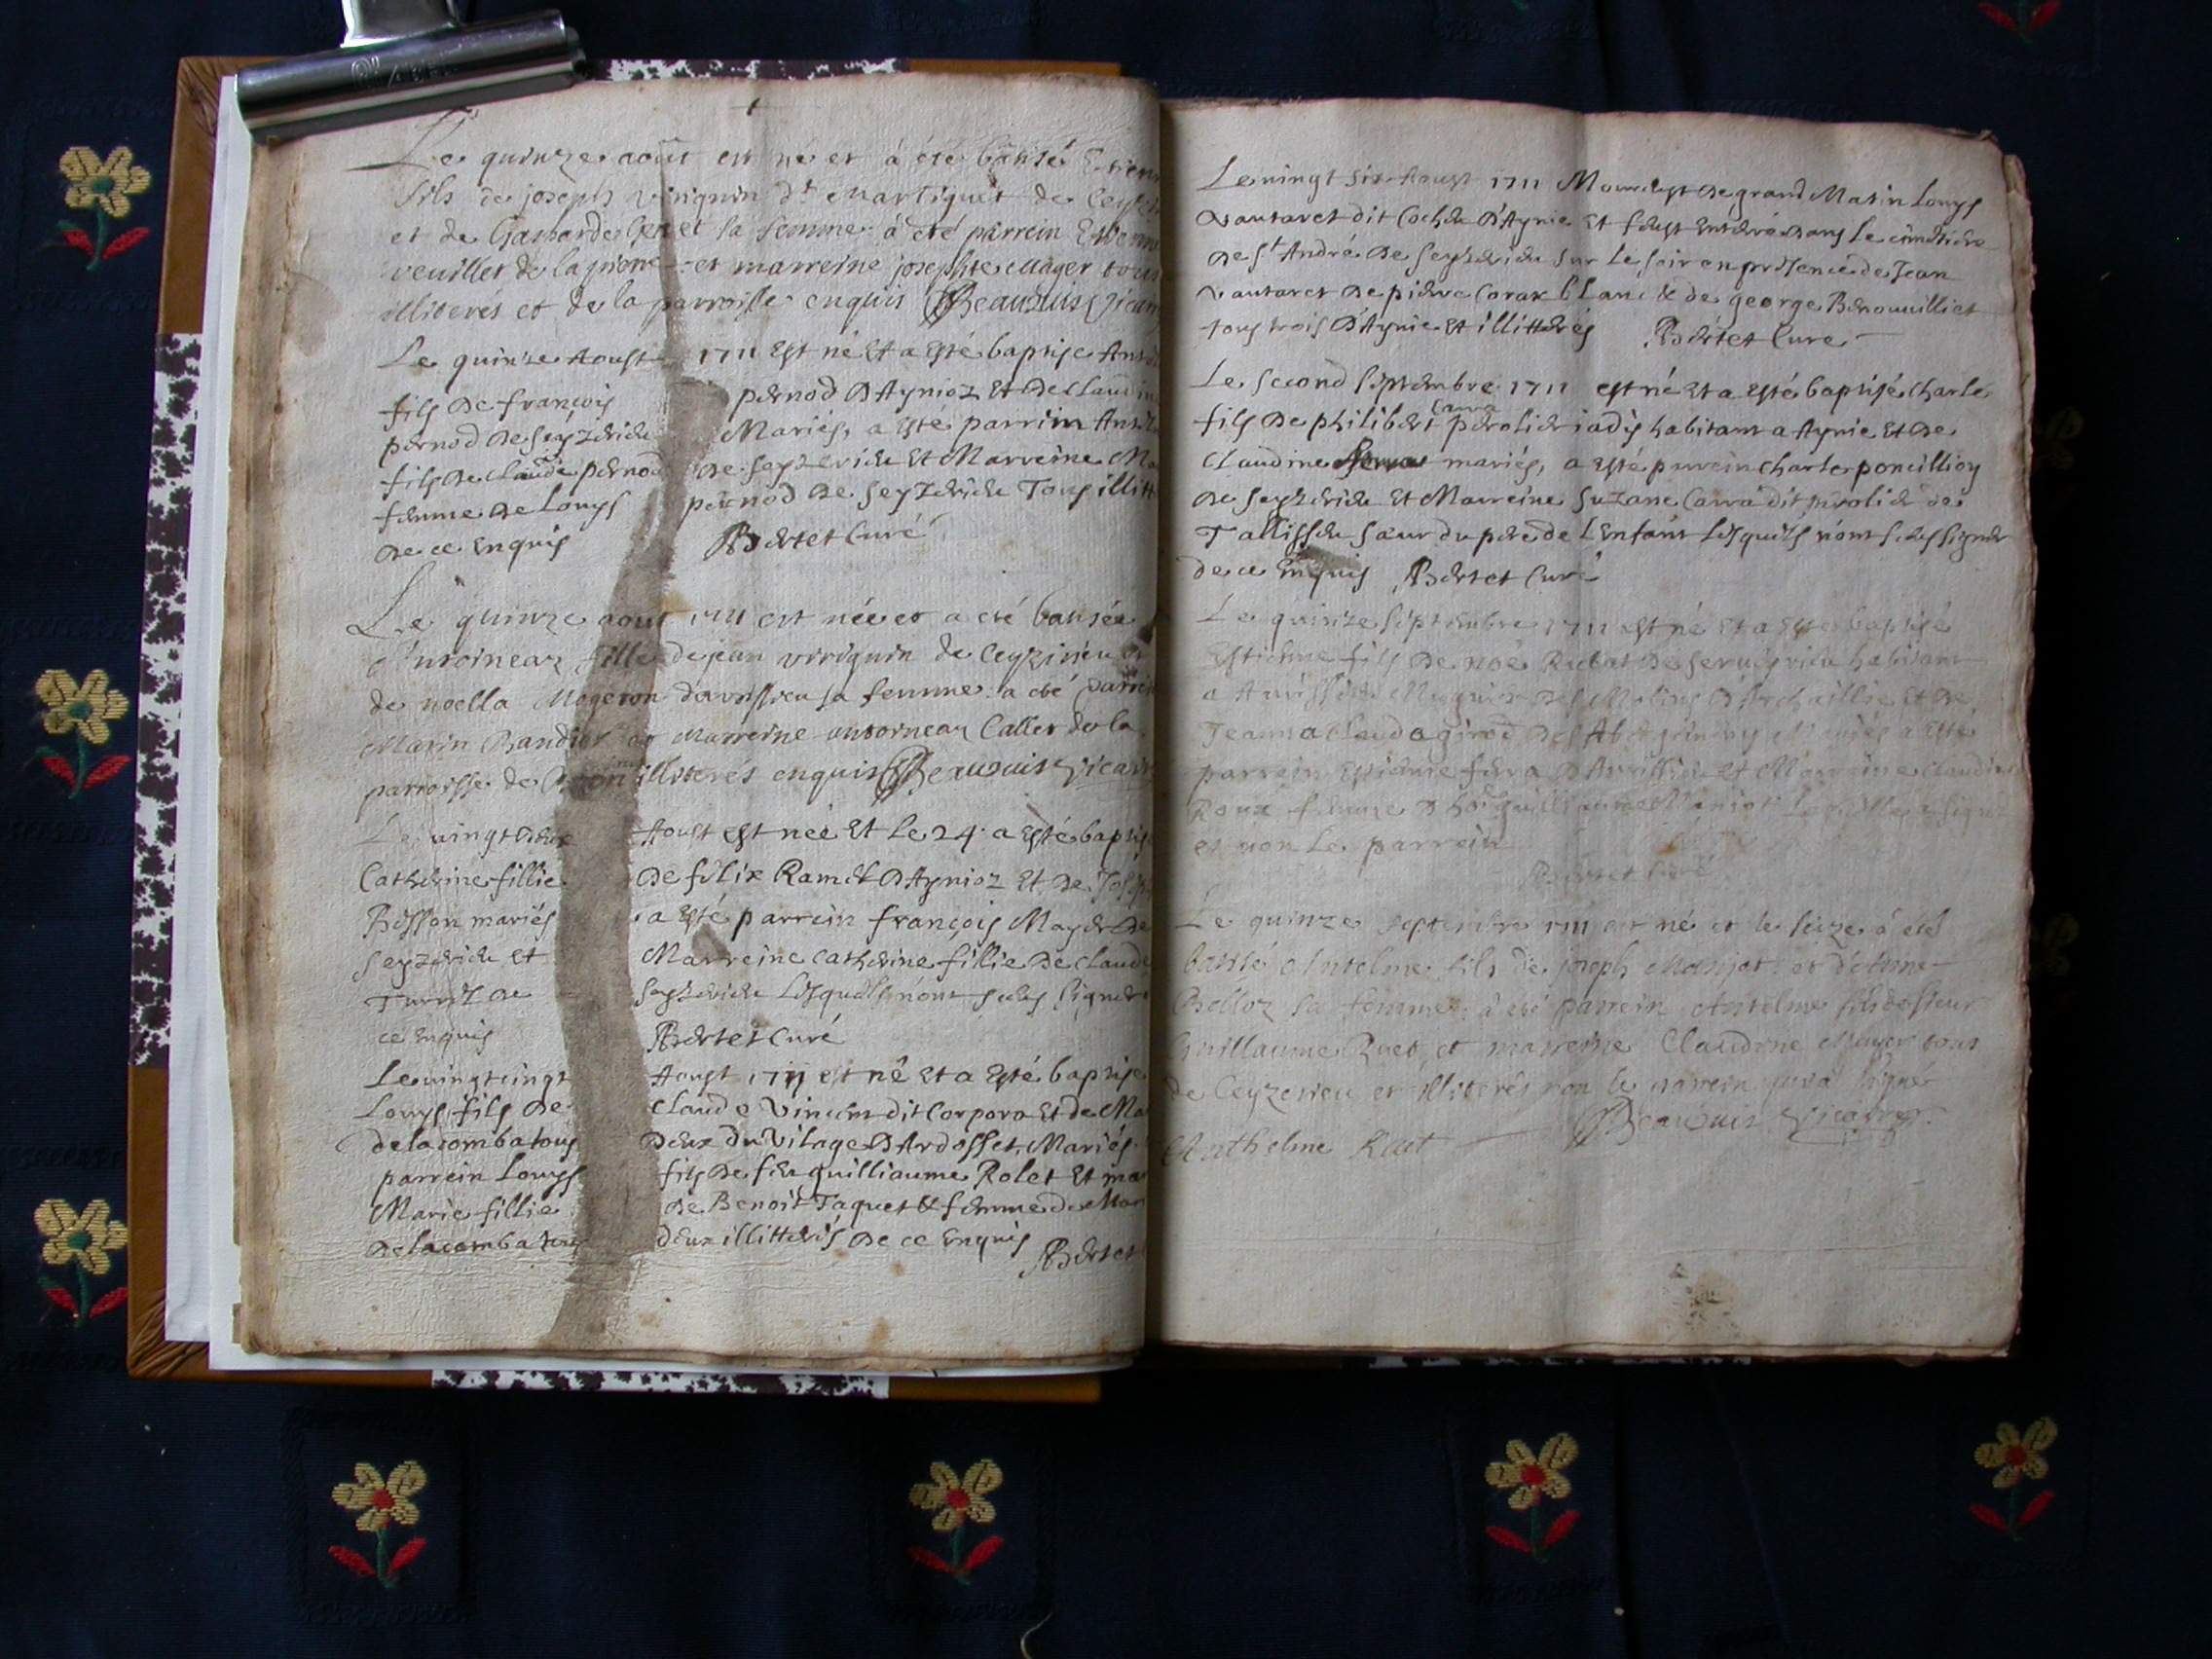 Le quinze août est né et à été batisé Etienn
fils de joseph viriguin dt Martiguet de
et de la femme à été parrein Etienne
veuillet de la et marreine josephte Mager tous
illiterés et de la parroisse enquis Beauduis vicair
Le quinze Aoust 1711 Est né Et a Esté baptisé
fils de françois pernod D'Aynioz Et de Claudin
pernod de Seyzerieu Mariés, a Esté parrin
fils de Claude pernod de Seyzerieu Et Marreine
femme de Louys pernod de Seyzerieu Tous illitt
de ce Enquis Bertet Curé
Le quinze aout 1711 est née et a eté batisée
Antoineaz fille de jean viriguin de Ceyzirieu
de noella Mogeron davrissieu sa femme a eté parrein
Marin Bandier et Marreine antoineaz Callet de la
parroisse de illiterés enquis Beauduis vicaire
Le vingtdeux Aoust est née Et Le 24. a Esté baptis
Catherine fillie de félix Ramel D'Aynioz Et de
Bosson mariés a Esté parrein françois Mayer de
Seyzerieu Et Marreine Catherine fillie de Claude
de Seyzerieu Lesquels n'ont sceus signer
ce Enquis Bertet Curé
Le vingtcinq Aoust 1711 est né Et a Esté baptisé
Louys fils de Claude Vincent dit Corpora Et de Ma
delacomba tous deux du Vilage D'Ardosset, Mariés
parrein Louys fils de feu guilliaume Rolet Et mar
Marie fillie de Benoit Taquet & femme de Mar
delacomba tous deux illitterés de ce Enquis Bertet
Le vingt six Aoust 1711 Mourust de grand Matin Louys
Vautaret dit Coche D'Aynie Et feust Enterré dans Le cimetiere
de St André de Seyzerieu sur Le soir en presence de Jean
Vautaret de pierre Corax blanc & de george
tous trois D'Aynie Et illitterés Bertet Curé
Le second septembre 1711 est né Et a Esté baptisé Charle
fils de philibert Carra perolier jadis habitant a Aynie Et de
Claudine mariés, a Esté parrein Charle poncillion
de Seyzerieu Et Marreine Suzane Carra dit perolier de
Tallissieu sœur du pere de L'Enfant Lesquels n'ont sceus signer
de ce Enquis Bertet Curé
Le quinze septembre 1711 est né Et a Esté baptisé
Estienne fils de noé Rubat de habitant
a Avrissieu Mugnier des Molins D'Archaillie Et de
Jeanna Clauda girod des Mariés a Esté
parrein Estienne ferra D'Avrissieu Et Marreine Claudine
Roux femme d'hoñe guilliaume Maniot Laquelle a signé
et non Le parrein
Bertet Curé
Le quinze septembre 1711 est né et le seize à eté
batisé Antelme fils de joseph Manjot et d'Anne
Belloz sa femme à eté parrein Antelme fils de sieur
Guillaume Ruet et marreine Claudine Mayer tous
de Ceyzerieu et illiterés non le parrein qui a signé
Anthelme Ruet Beauduis vicaire